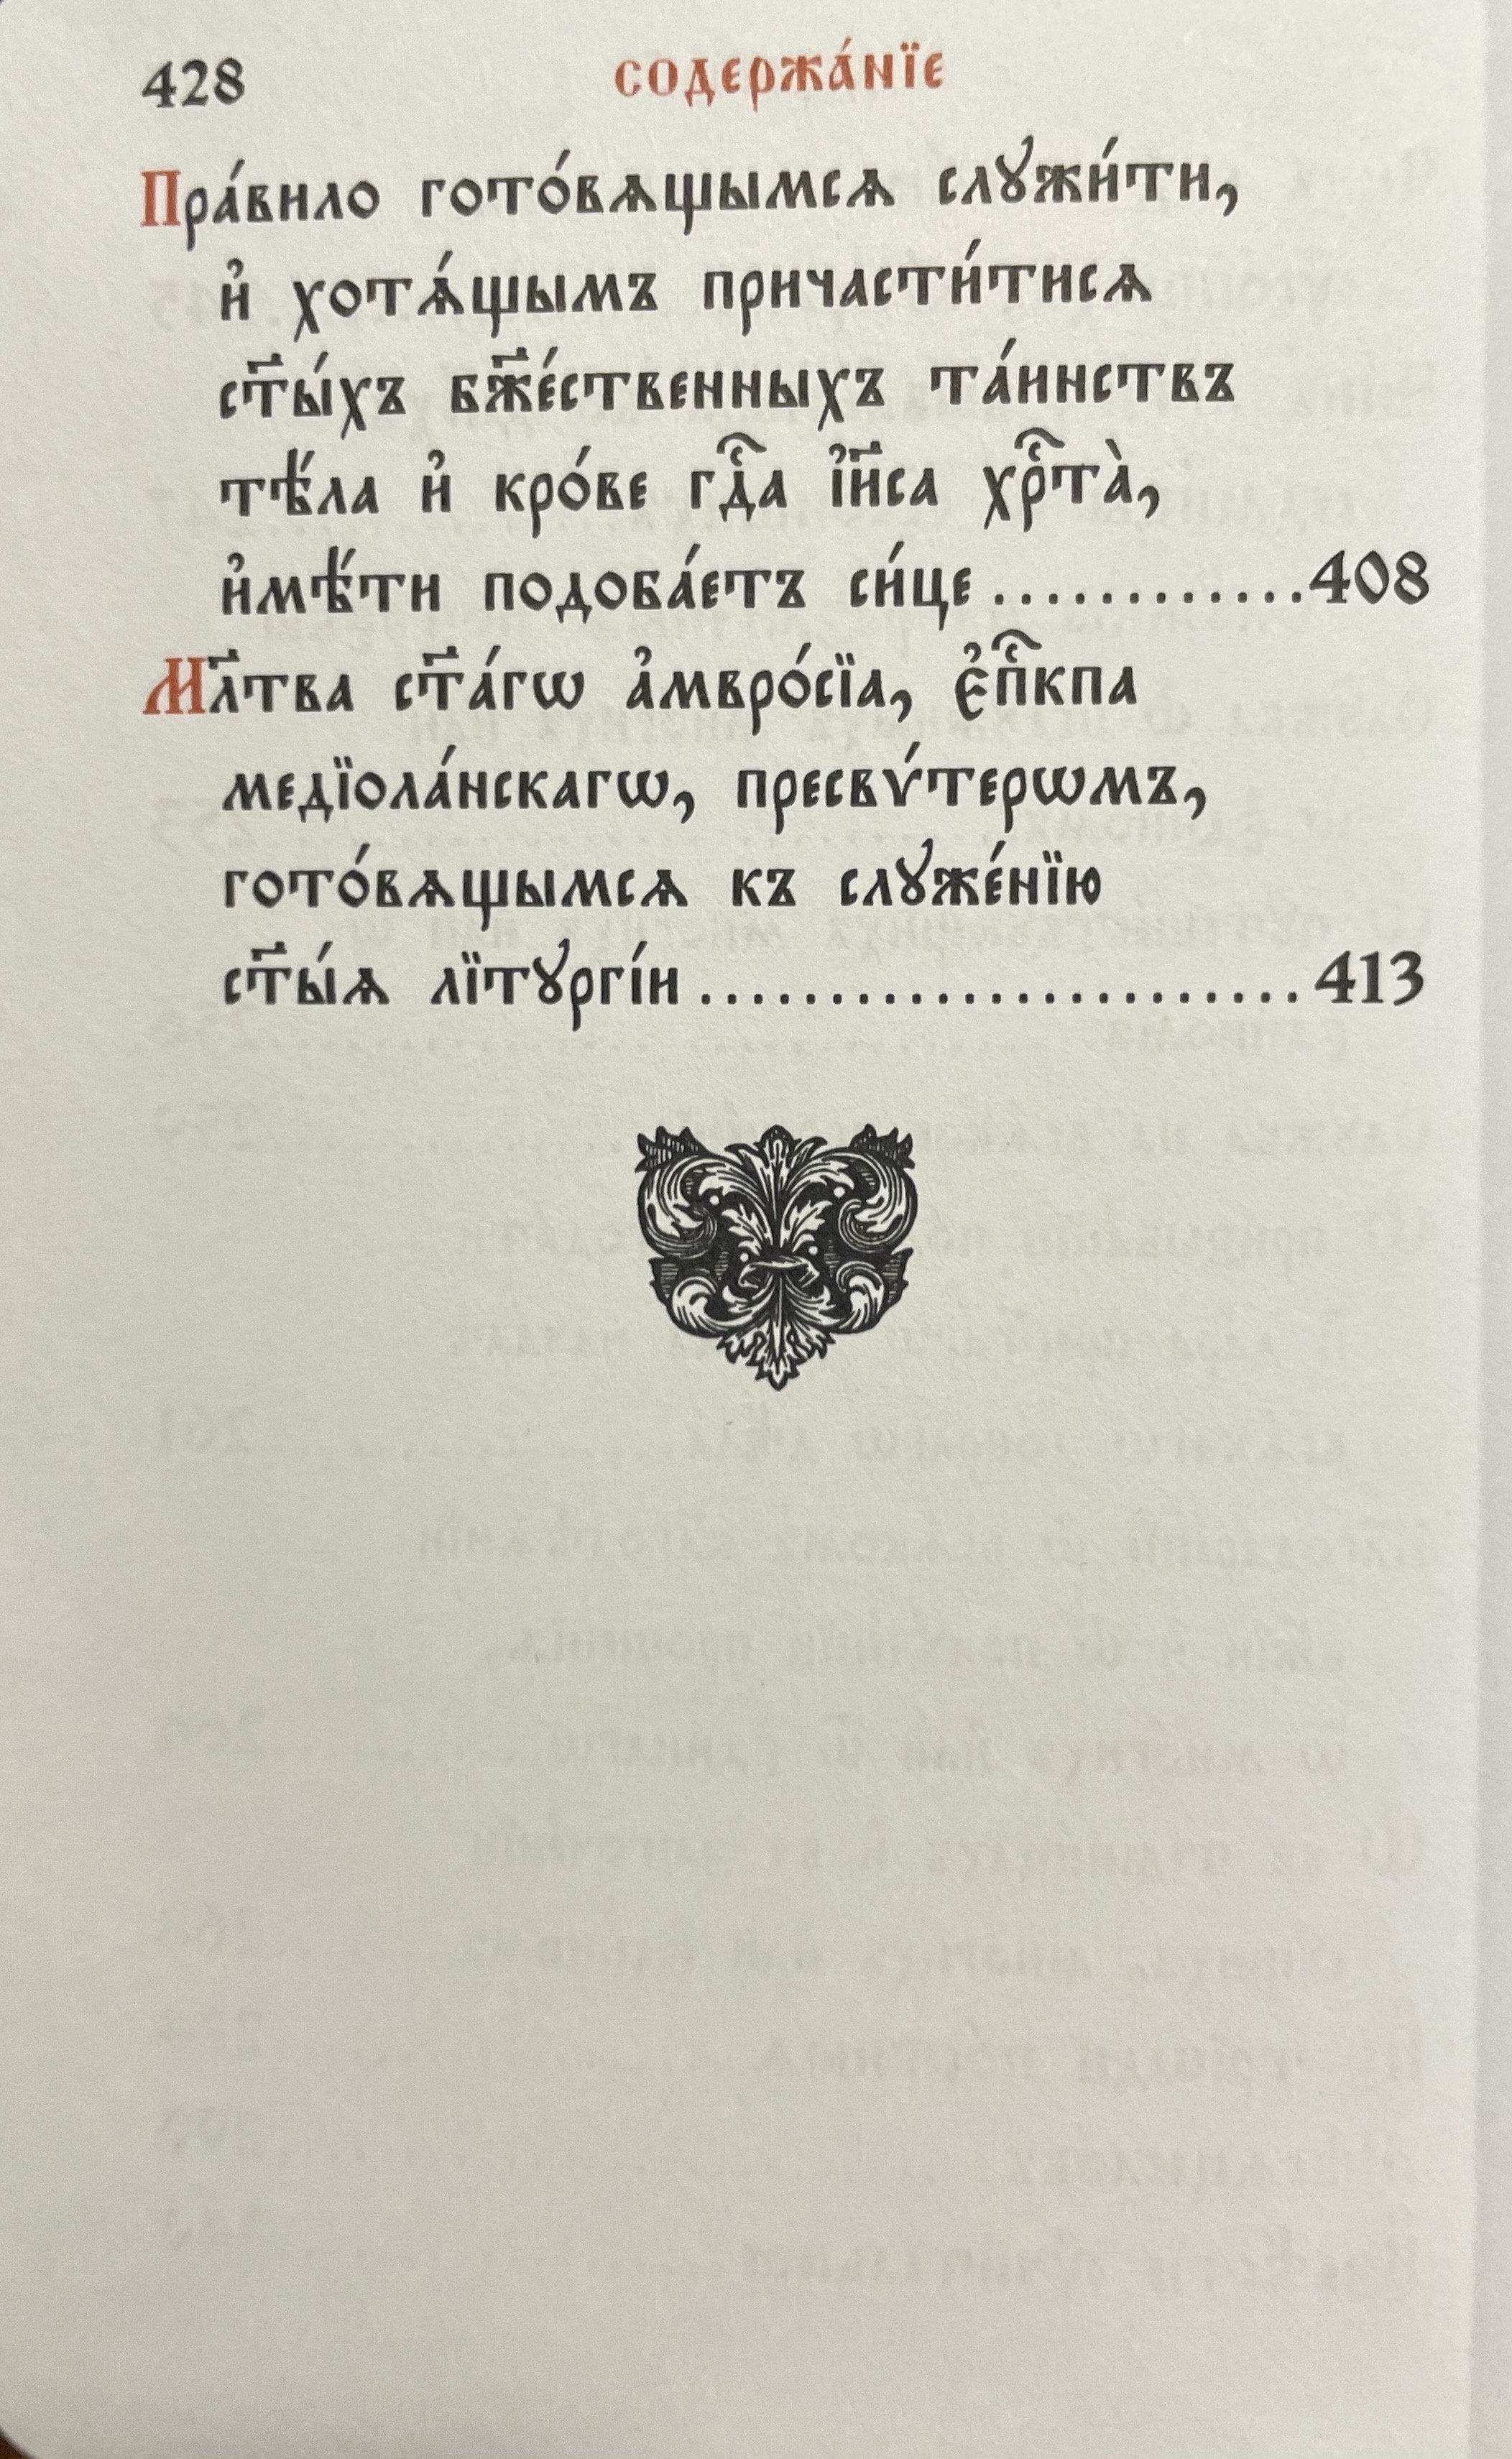 428 содержа́нїе
Пра́вило гото́вѧщымсѧ слꙋжи́ти,
и҆ хотѧ́щымъ причасти́тисѧ
ст҃ы́хъ бж҃е́ственныхъ та́инствъ
тѣ́ла и҆ кро́ве гдⷭ҇а і҆и҃са хрⷭ҇та̀,
и҆мѣ́ти подоба́етъ си́це............408
Мл҃тва ст҃а́гѡ а҆мвро́сїа, є҆пⷭ҇кпа
медїола́нскагѡ, пресвѵ́терѡмъ,
гото́вѧщымсѧ къ слꙋже́нїю
ст҃ы́ѧ лїтꙋргі́и.......................413